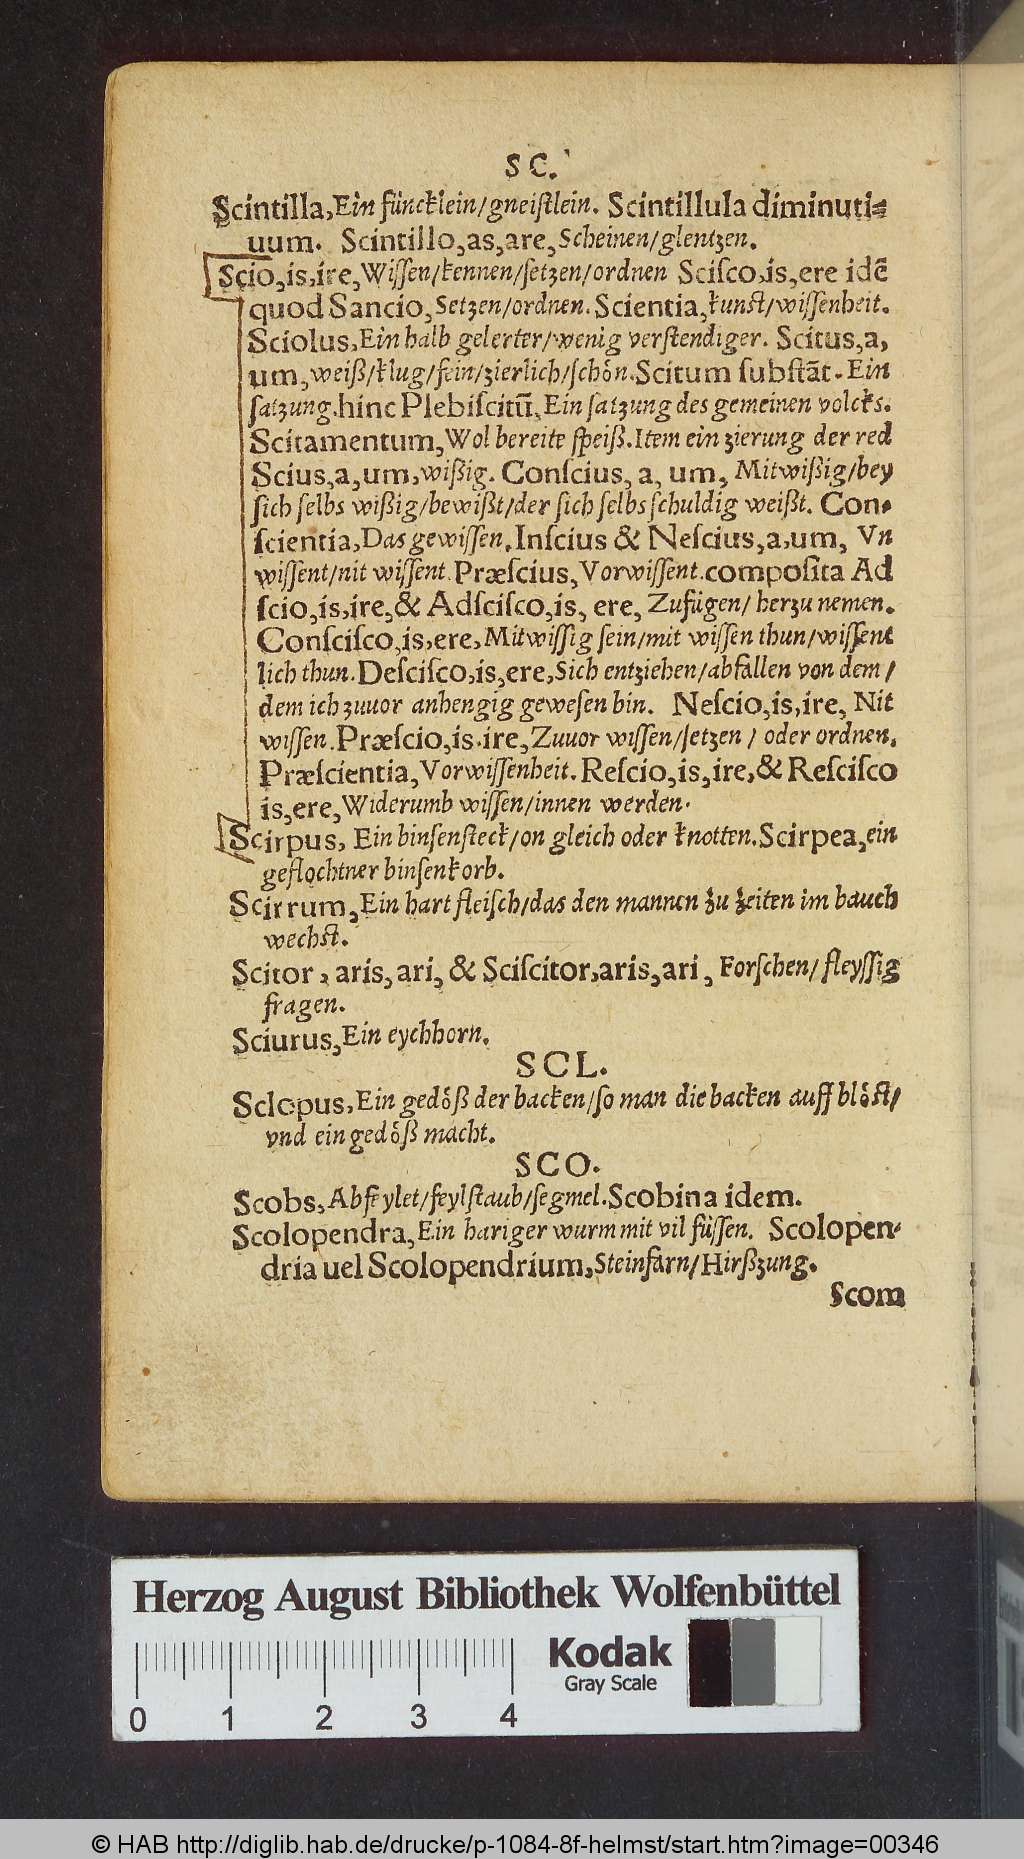 SC.
Scintilla, Ein füncklein/gneiſtlein. Scintillula diminuti⸗
uum. Scintillo, as, are, Scheinen/glentzen.
Scio, is, ire, Wiſſen/kennen/ſetzen/ordnen Sciſco, is, ere idē
quod Sancio, Setzen/ordnen. Scientia, kunſt/wiſſenheit.
Sciolus, Ein halb gelerter/wenig verſtendiger. Scitus, a,
um, weiß/klug/fein/zierlich/ſchön. Scitum ſubſtāt. Ein
ſatzung. hinc Plebiſcitū, Ein ſatzung des gemeinen volcks.
Scitamentum, Wol bereite ſpeiß. Item ein zierung der red
Scius, a, um, wißig. Conſcius, a, um, Mitwißig/bey
ſich ſelbs wißig/bewißt/der ſich ſelbs ſchuldig weißt. Con⸗
ſcientia, Das gewiſſen. Inſcius & Neſcius, a, um, Vn
wiſſent/nit wiſſent. Præſcius, Vorwiſſent. compoſita Ad
ſcio, is, ire, & Adſciſco, is, ere, Zufügen/ herzu nemen.
Conſciſco, is, ere, Mitwiſſig ſein/mit wiſſen thun/wiſſent
lich thun. Deſciſco, is, ere, Sich entziehen/abfallen von dem/
dem ich zuuor anhengig geweſen bin. Neſcio, is, ire, Nit
wiſſen. Præſcio, is, ire, Zuuor wiſſen/ſetzen/ oder ordnen.
Præſcientia, Vorwiſſenheit. Reſcio, is, ire, & Reſciſco
is, ere, Widerumb wiſſen/innen werden.
Scirpus, Ein binſenſteck/on gleich oder knotten. Scirpea, ein
geflochtner binſenkorb.
Scirrum, Ein hart fleiſch/das den mannen zu zeiten im bauch
wechſt.
Scitor, aris, ari, & Sciſcitor, aris, ari, Forſchen/ fleyſſig
fragen.
Sciurus, Ein eychhorn.
SCL.
Sclopus, Ein gedöß der backen/ſo man die backen auff blöſt/
vnd ein gedöß macht.
SCO.
Scobs, Abfeylet/feylſtaub/ſegmel. Scobina idem.
Scolopendra, Ein hariger wurm mit vil füſſen. Scolopen⸗
dria uel Scolopendrium, Steinfarn/Hirßzung.
Scom
Herzog August Bibliothek Wolfenbüttel
Kodak
Gray Scale
0 1 2 3 4
© HAB http://diglib.hab.de/drucke/p-1084-8f-helmst/start.htm?image=00346